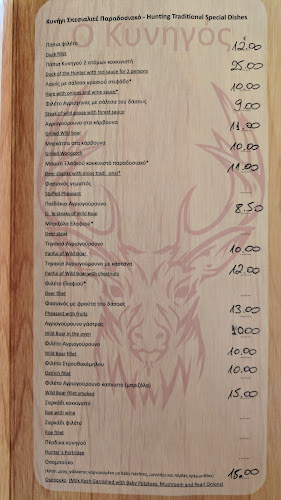 Κυνήγι Σπεσιαλιτέ Παραδοσιακό - Hunting Traditional Special Dishes
Ο Κυνηγός
Πάπια φιλέτο 12.00
Duck fillet
Πάπια Κυνηγού 2 ατόμων κοκκινιστή 25.00
Duck of the Hunter with red sauce for 2 persons
Λαγός με σάλτσα κρασιού στιφάδο* 10.00
Hare with onions and wine sauce*
Φιλέτο Αγριόχηνας με σάλτσα του δάσους 9.00
Steak of wild goose with forest sauce
Αγριογούρουνο στα κάρβουνα 11.00
Grilled Wild boar
Μπεκάτσα στα κάρβουνα 10.00
Grilled Woodcock
Μπούτι Ελαφιού κοκκινιστό παραδοσιακό* 11.00
Deer shanks with onion traditional*
Φασιανός γεμιστός
Stuffed Pheasant
Παϊδάκια Αγριογούρουνο 8.50
steaks of Wild Boar
Μπριζόλα Ελαφιού*
Deer steak
Τηγανιά Αγριογούρουνο 10.00
Panful of Wild Boar
Τηγανιά Αγριογούρουνο με κάστανα 12.00
Panful of Wild Boar with chestnuts
Φιλέτο Ελαφιού*
Deer fillet
Φασιανός με φρούτα του δάσους 13.00
Pheasant with fruits
Αγριογούρουνο γάστρας 10.00
Wild Boar in the oven
Φιλέτο Αγριογούρουνο 10.00
Wild Boar fillet
Φιλέτο Στρουθοκάμηλου 10.00
Ostrich fillet
Φιλέτο Αγριογούρουνο καπνιστό 15.00
Wild Boar fillet smoked
Ζαρκάδι κοκκινιστό
Roe with wine
Ζαρκάδι φιλέτο
Roe fillet
Πέρδικα κυνηγού
Hunter's Partridge
Οσομπούκο 18.00
Ossobuko (Milk Koch Garnished with Baby Potatoes, Mushroom and Pearl Onions)